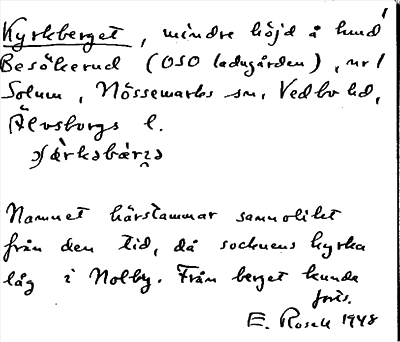 1
Kyrkberget, mindre höjd å lund
Besökerud (OSO ladugården), nr 1
Solum, Nössemarks sn, Vedbo hd,
Älvsborgs l.
Namnet härstammar sannolikt
från den tid, då socknens kyrka
låg i Nolby. Från berget kunde
forts.
E. Rosell 1948